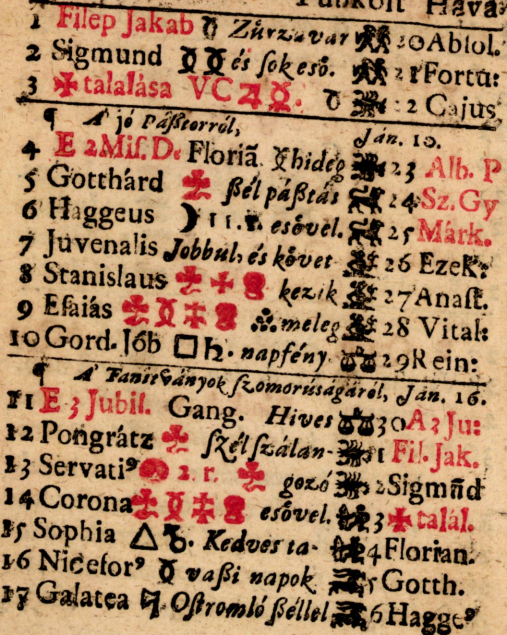 Pünköst Hava
1 Filep Jakab ☿ Zűrzavar 20 Absol.
2 Sigmund és sok eső. 21 Fortu:
3 ✠ talalása VC ♃ 22 Cajus
¶ A' jó Pásztorról, Ján. 10.
4 E 2 Mis. D: Floriã. hideg 23 Alb. P
5 Gotthárd ßél páßtás 24 Sz. Gy
6 Haggeus ☽ 11. esővel. 25 Márk.
7 Juvenalis Jobbul. és követ 26 Ezek:
8 Stanislaus kezik 27 Anast.
9 Esaiás meleg 28 Vital:
10 Gord. Jób □ ♄. napfény. 29 Rein:
¶ A' Tanitványok szomorúságáról, Ján. 16.
11 E 3 Jubil. Gang. Hives 30 A 3 Ju:
12 Pongrátz szél szálan- 1 Fil. Jak.
13 Servati⁹ 2. r. gozó 2 Sigmũd
14 Corona esővel. 3 ✠ talál.
15 Sophia △ ♄. Kedves ta- 4 Florian.
16 Nicefor⁹ vaßi napok 5 Gotth.
17 Galatea Ostromló ßéllel 6 Hagge⁹